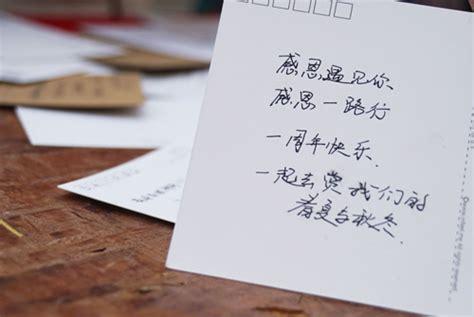 感恩遇见你
感恩一路行
一周年快乐.
一起去赏我们的
春夏与秋冬.